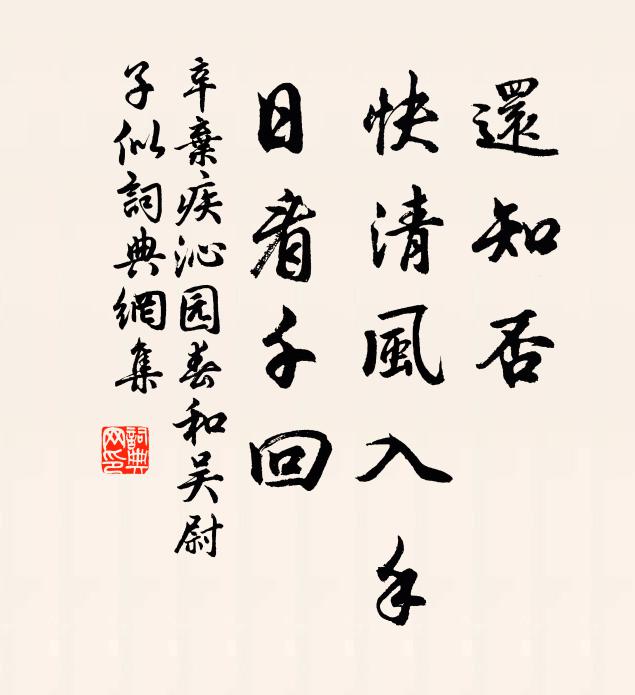 還知否
快清風入手
日看千回
辛棄疾沁园春和吴尉
子似詞典網集
詞典
网印